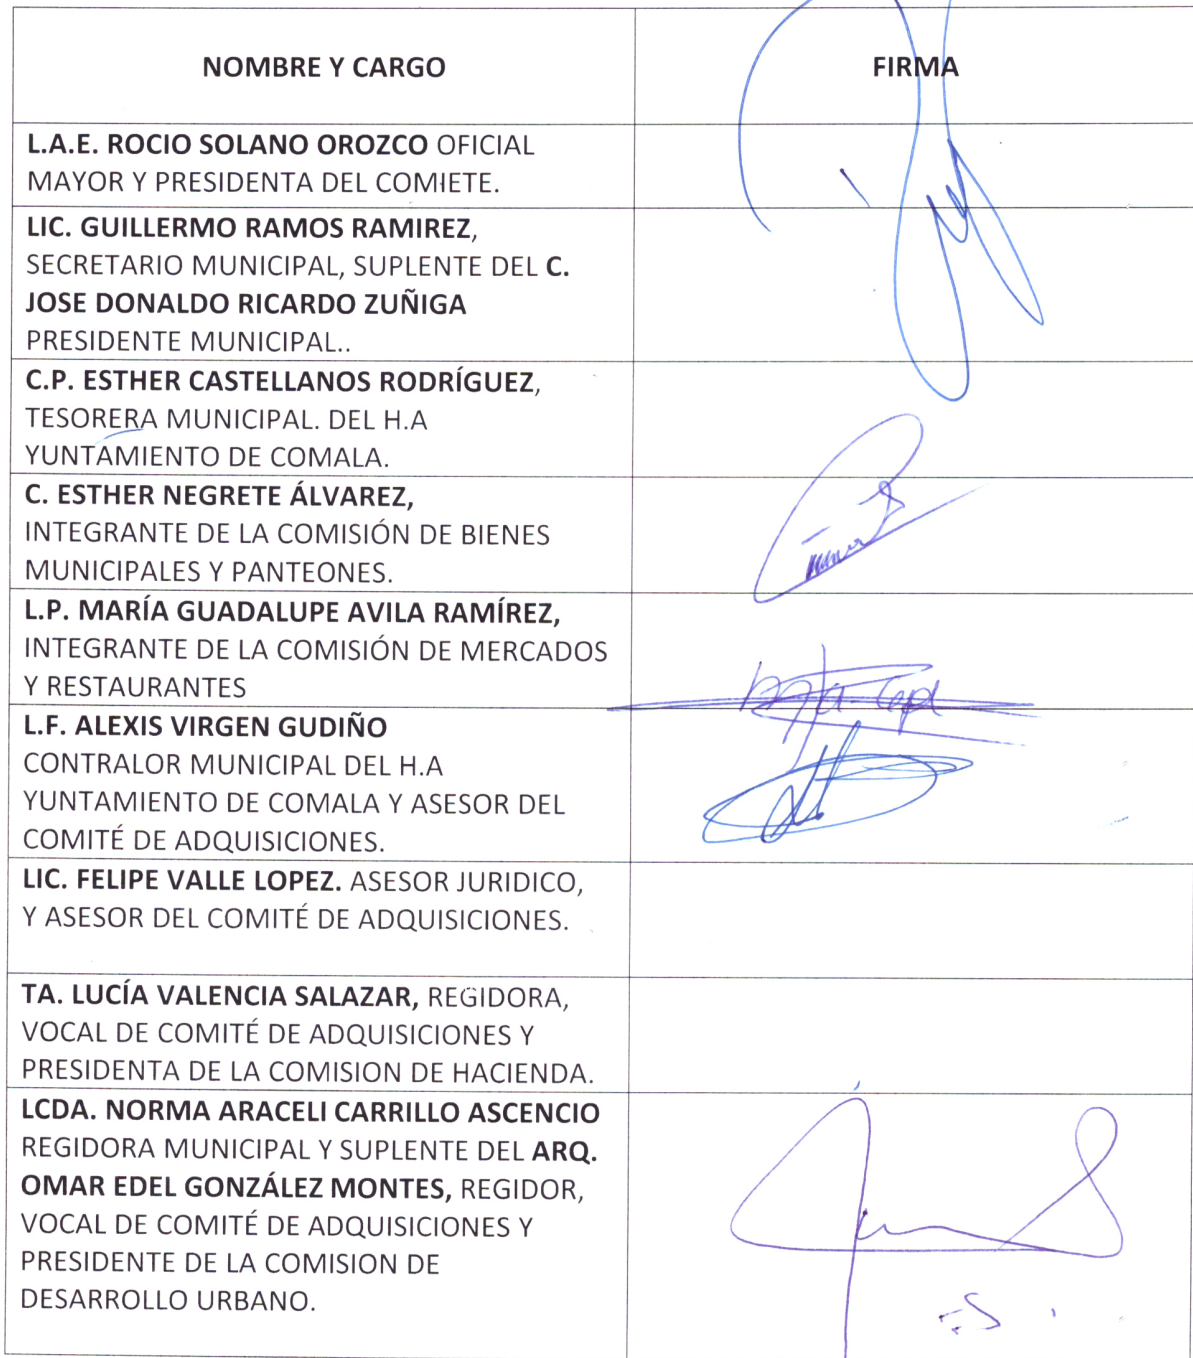 NOMBRE Y CARGO
FIRMA
L.A.E. ROCIO SOLANO OROZCO OFICIAL
MAYOR Y PRESIDENTA DEL COMIETE.
LIC. GUILLERMO RAMOS RAMIREZ,
SECRETARIO MUNICIPAL, SUPLENTE DEL C.
JOSE DONALDO RICARDO ZUÑIGA
PRESIDENTE MUNICIPAL..
C.P. ESTHER CASTELLANOS RODRÍGUEZ,
TESORERA MUNICIPAL. DEL H.A
YUNTAMIENTO DE COMALA.
C. ESTHER NEGRETE ÁLVAREZ,
INTEGRANTE DE LA COMISIÓN DE BIENES
MUNICIPALES Y PANTEONES.
L.P. MARÍA GUADALUPE AVILA RAMÍREZ,
INTEGRANTE DE LA COMISIÓN DE MERCADOS
Y RESTAURANTES
L.F. ALEXIS VIRGEN GUDIÑO
CONTRALOR MUNICIPAL DEL H.A
YUNTAMIENTO DE COMALA Y ASESOR DEL
COMITÉ DE ADQUISICIONES.
LIC. FELIPE VALLE LOPEZ. ASESOR JURIDICO,
Y ASESOR DEL COMITÉ DE ADQUISICIONES.
TA. LUCÍA VALENCIA SALAZAR, REGIDORA,
VOCAL DE COMITÉ DE ADQUISICIONES Y
PRESIDENTA DE LA COMISION DE HACIENDA.
LCDA. NORMA ARACELI CARRILLO ASCENCIO
REGIDORA MUNICIPAL Y SUPLENTE DEL ARQ.
OMAR EDEL GONZÁLEZ MONTES, REGIDOR,
VOCAL DE COMITÉ DE ADQUISICIONES Y
PRESIDENTE DE LA COMISION DE
DESARROLLO URBANO.